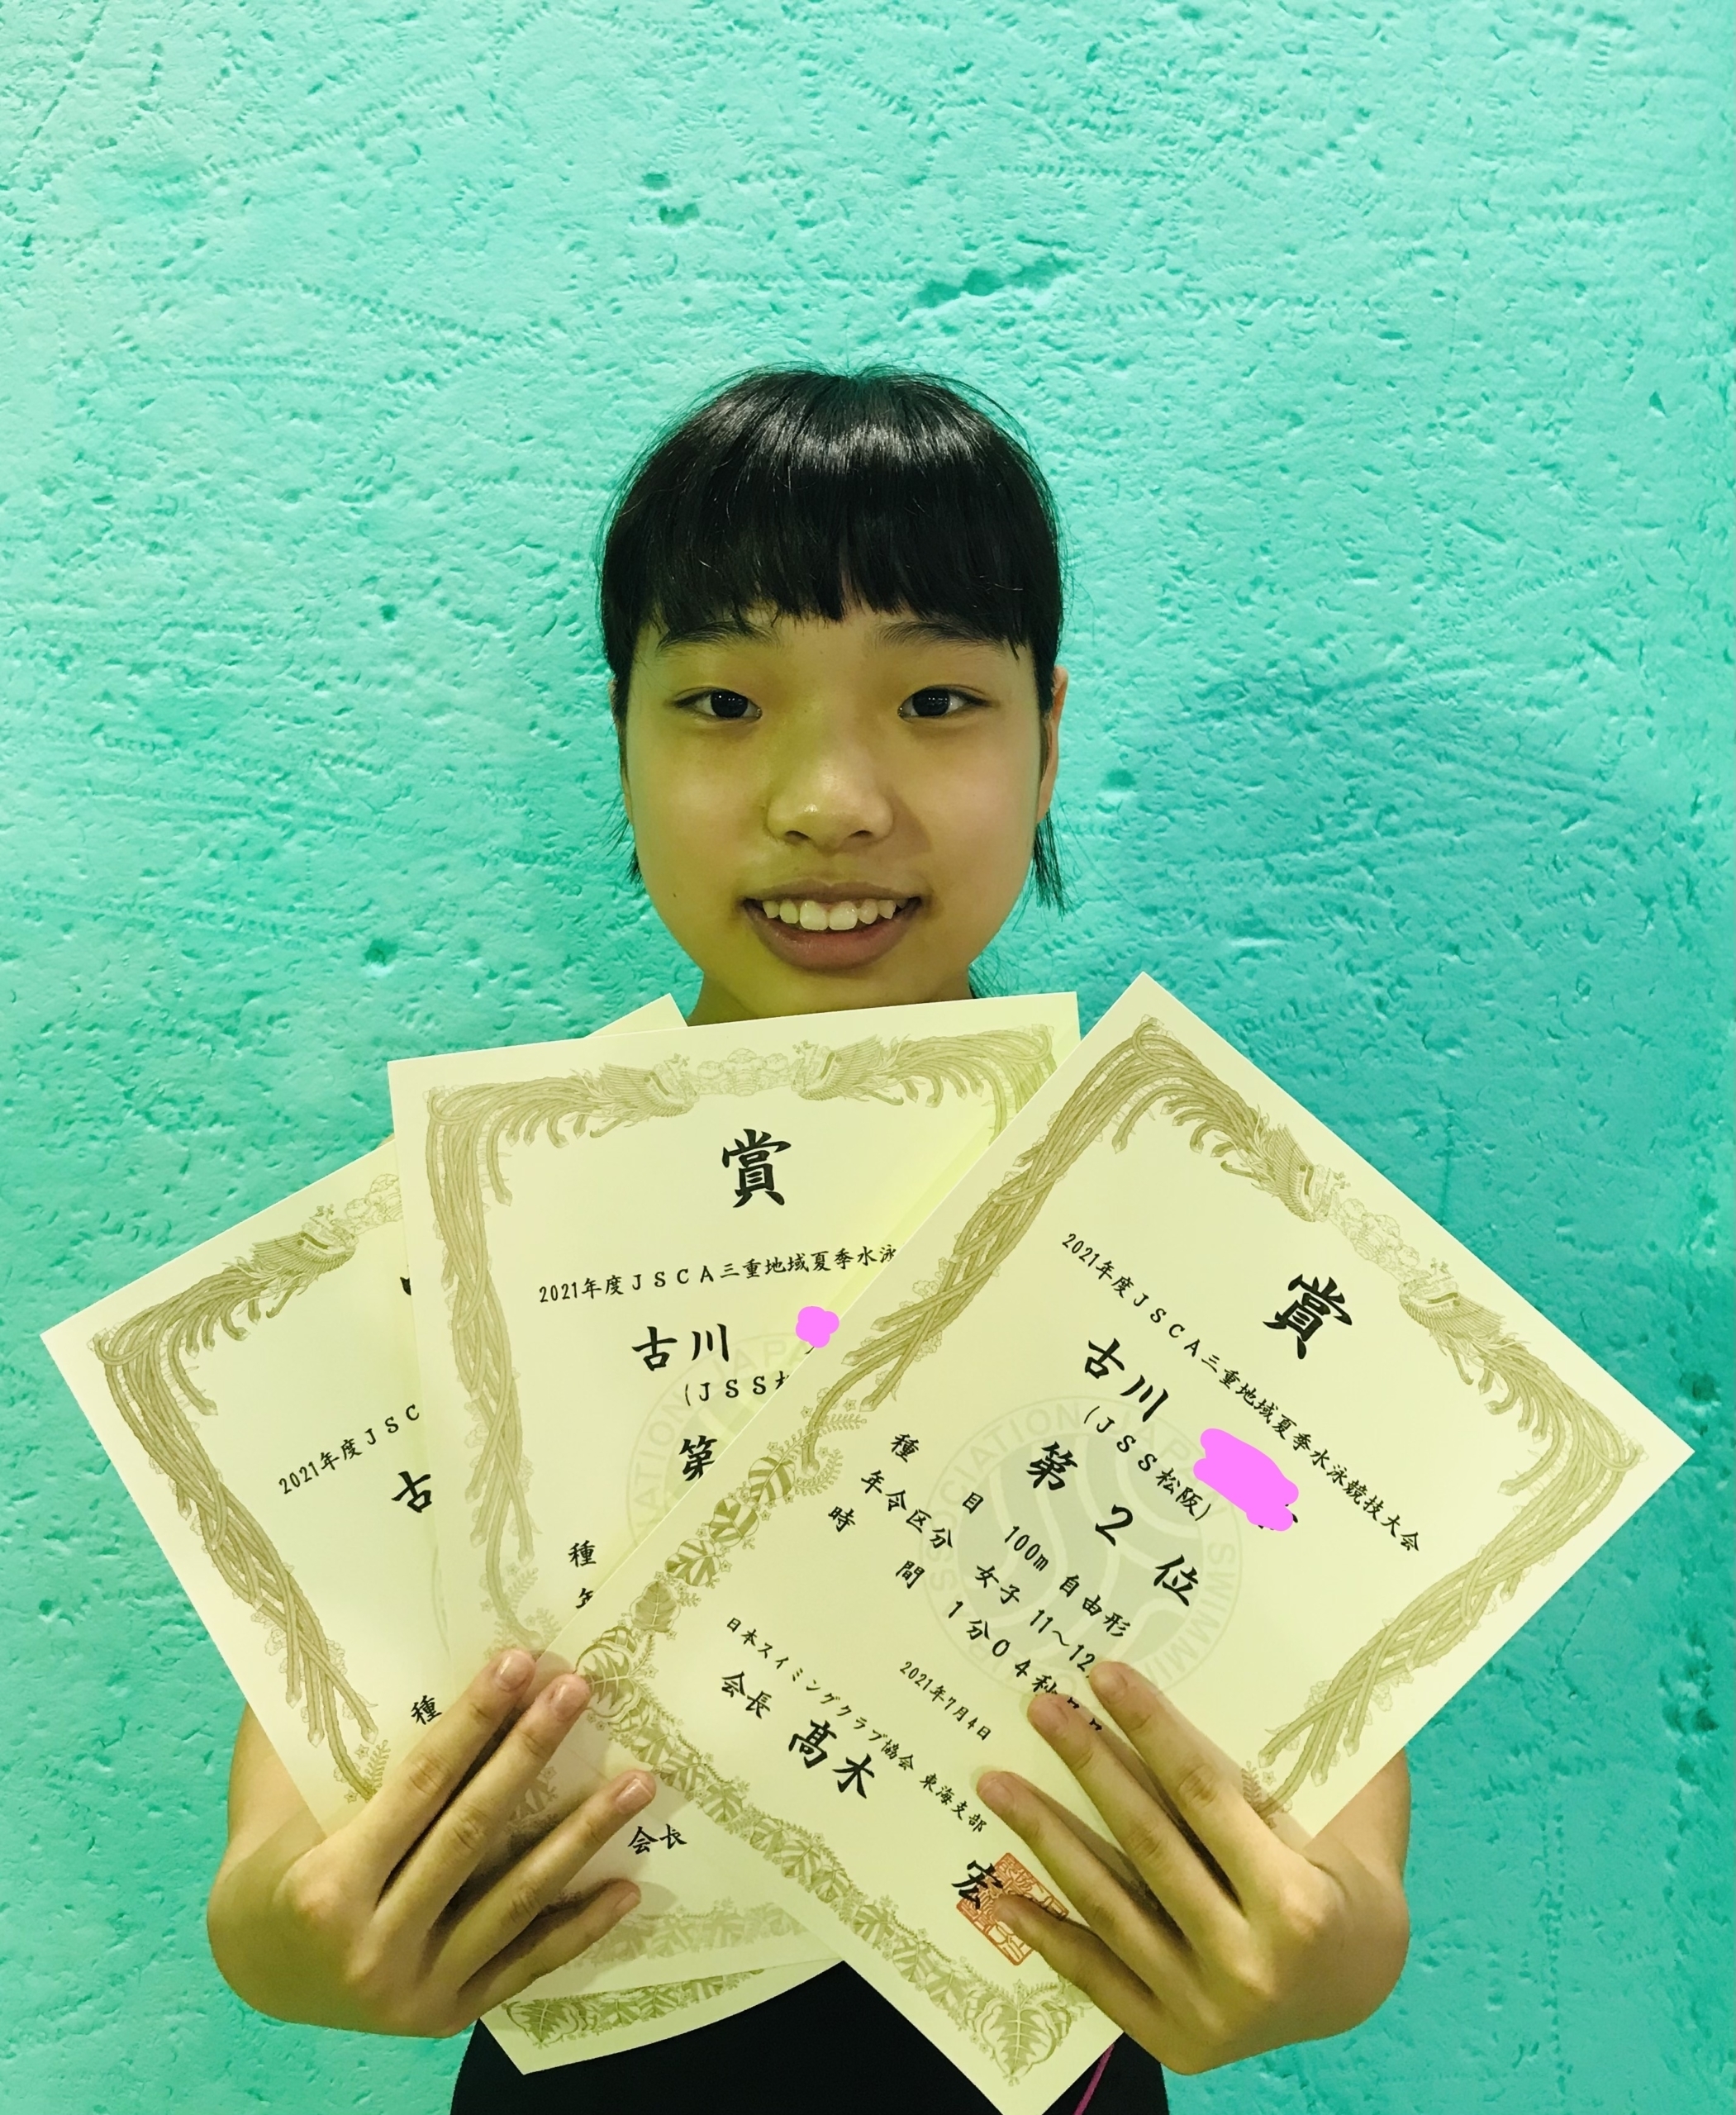 2021年度JSC
古
種
賞
2021年度JSCA三重地域夏季水泳
古川
(JSS
第
種
会長
賞
2021年度JSCA三重地域夏季水泳競技大会
古川
(JSS松阪)
第2位
種目 100m 自由形
年令区分 女子 11~12
時間 1分04秒
2021年7月4日
日本スイミングクラブ協会 東海支部
会長 髙木 宏
SSOCIATION JAPA SWIMMI